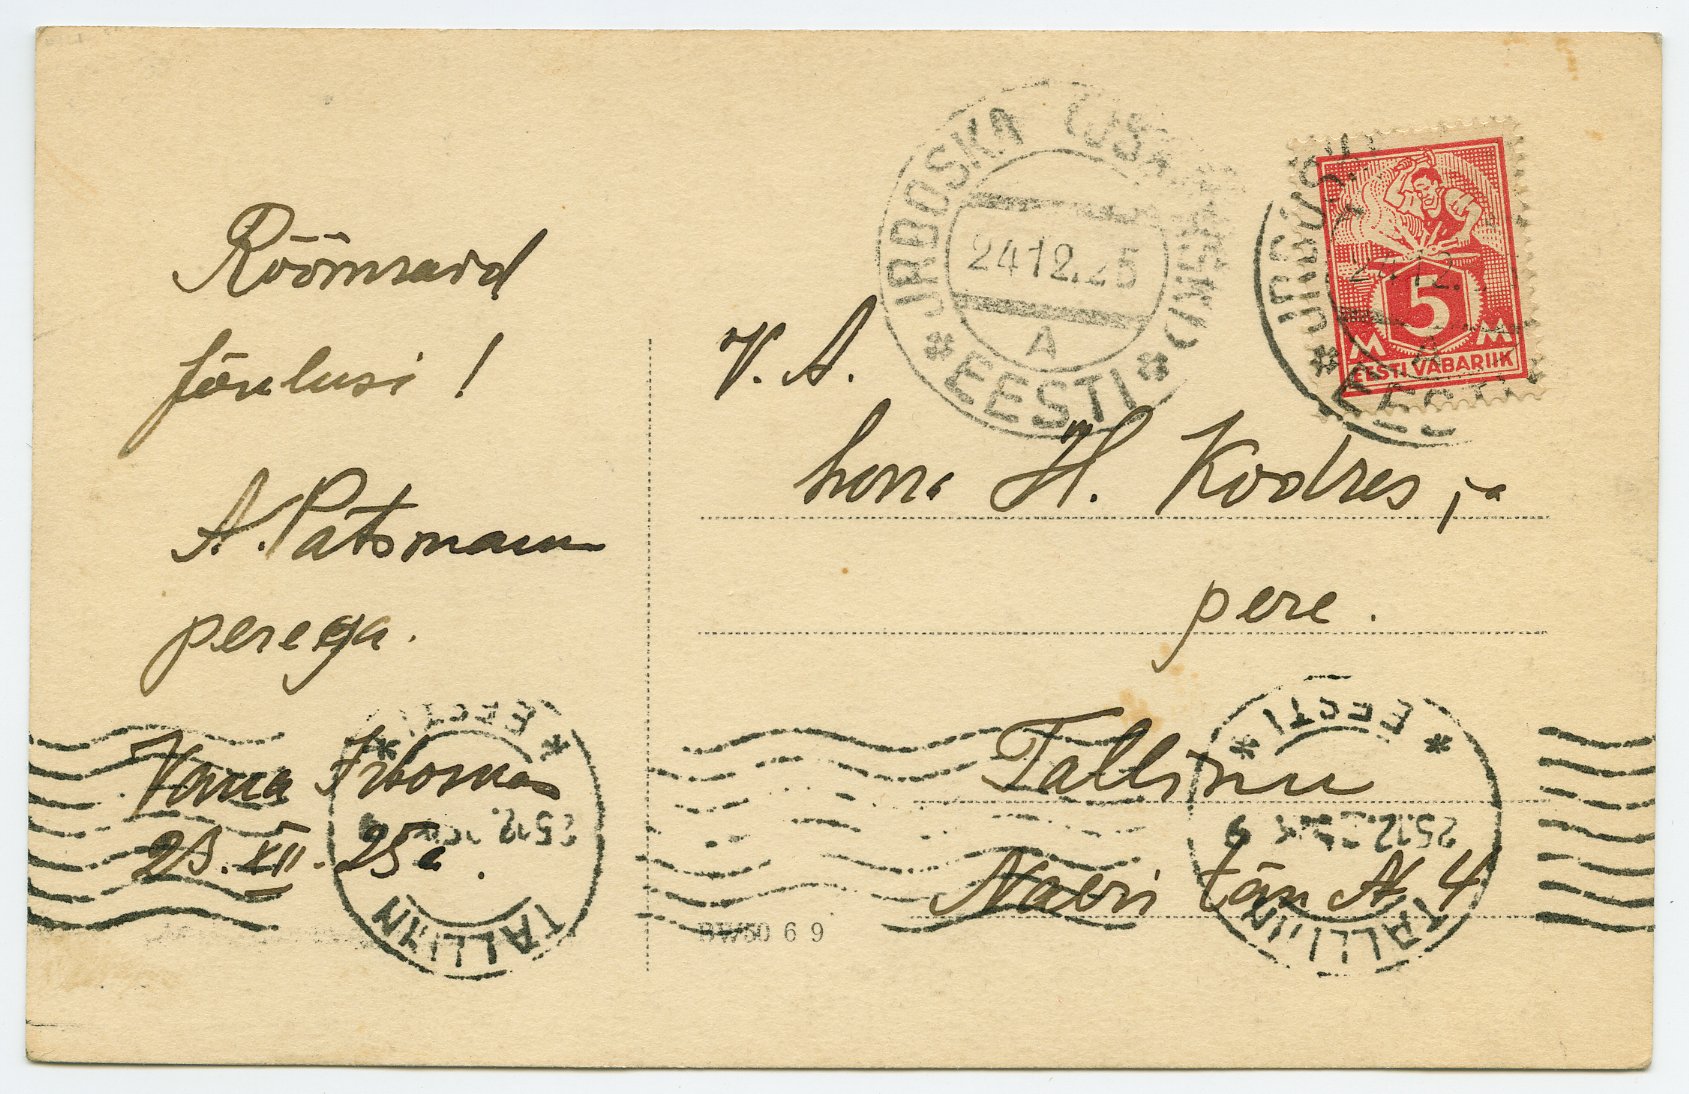 Rõõmsaid
jõulusi!
A. Pätsmann
perega.
Vana Irboska
23. XII. 25a.
V. A.
herra H. Kodres, ja
pere.
Tallinn
Narri tän № 4
JRBOSKA
24 12.25
A
* EESTI *
24 12.
A
5
M M
EESTI VABARIIK
* EESTI *
25.12.
TALLINN
* EESTI *
25.12.
TALLINN
BW50 6 9